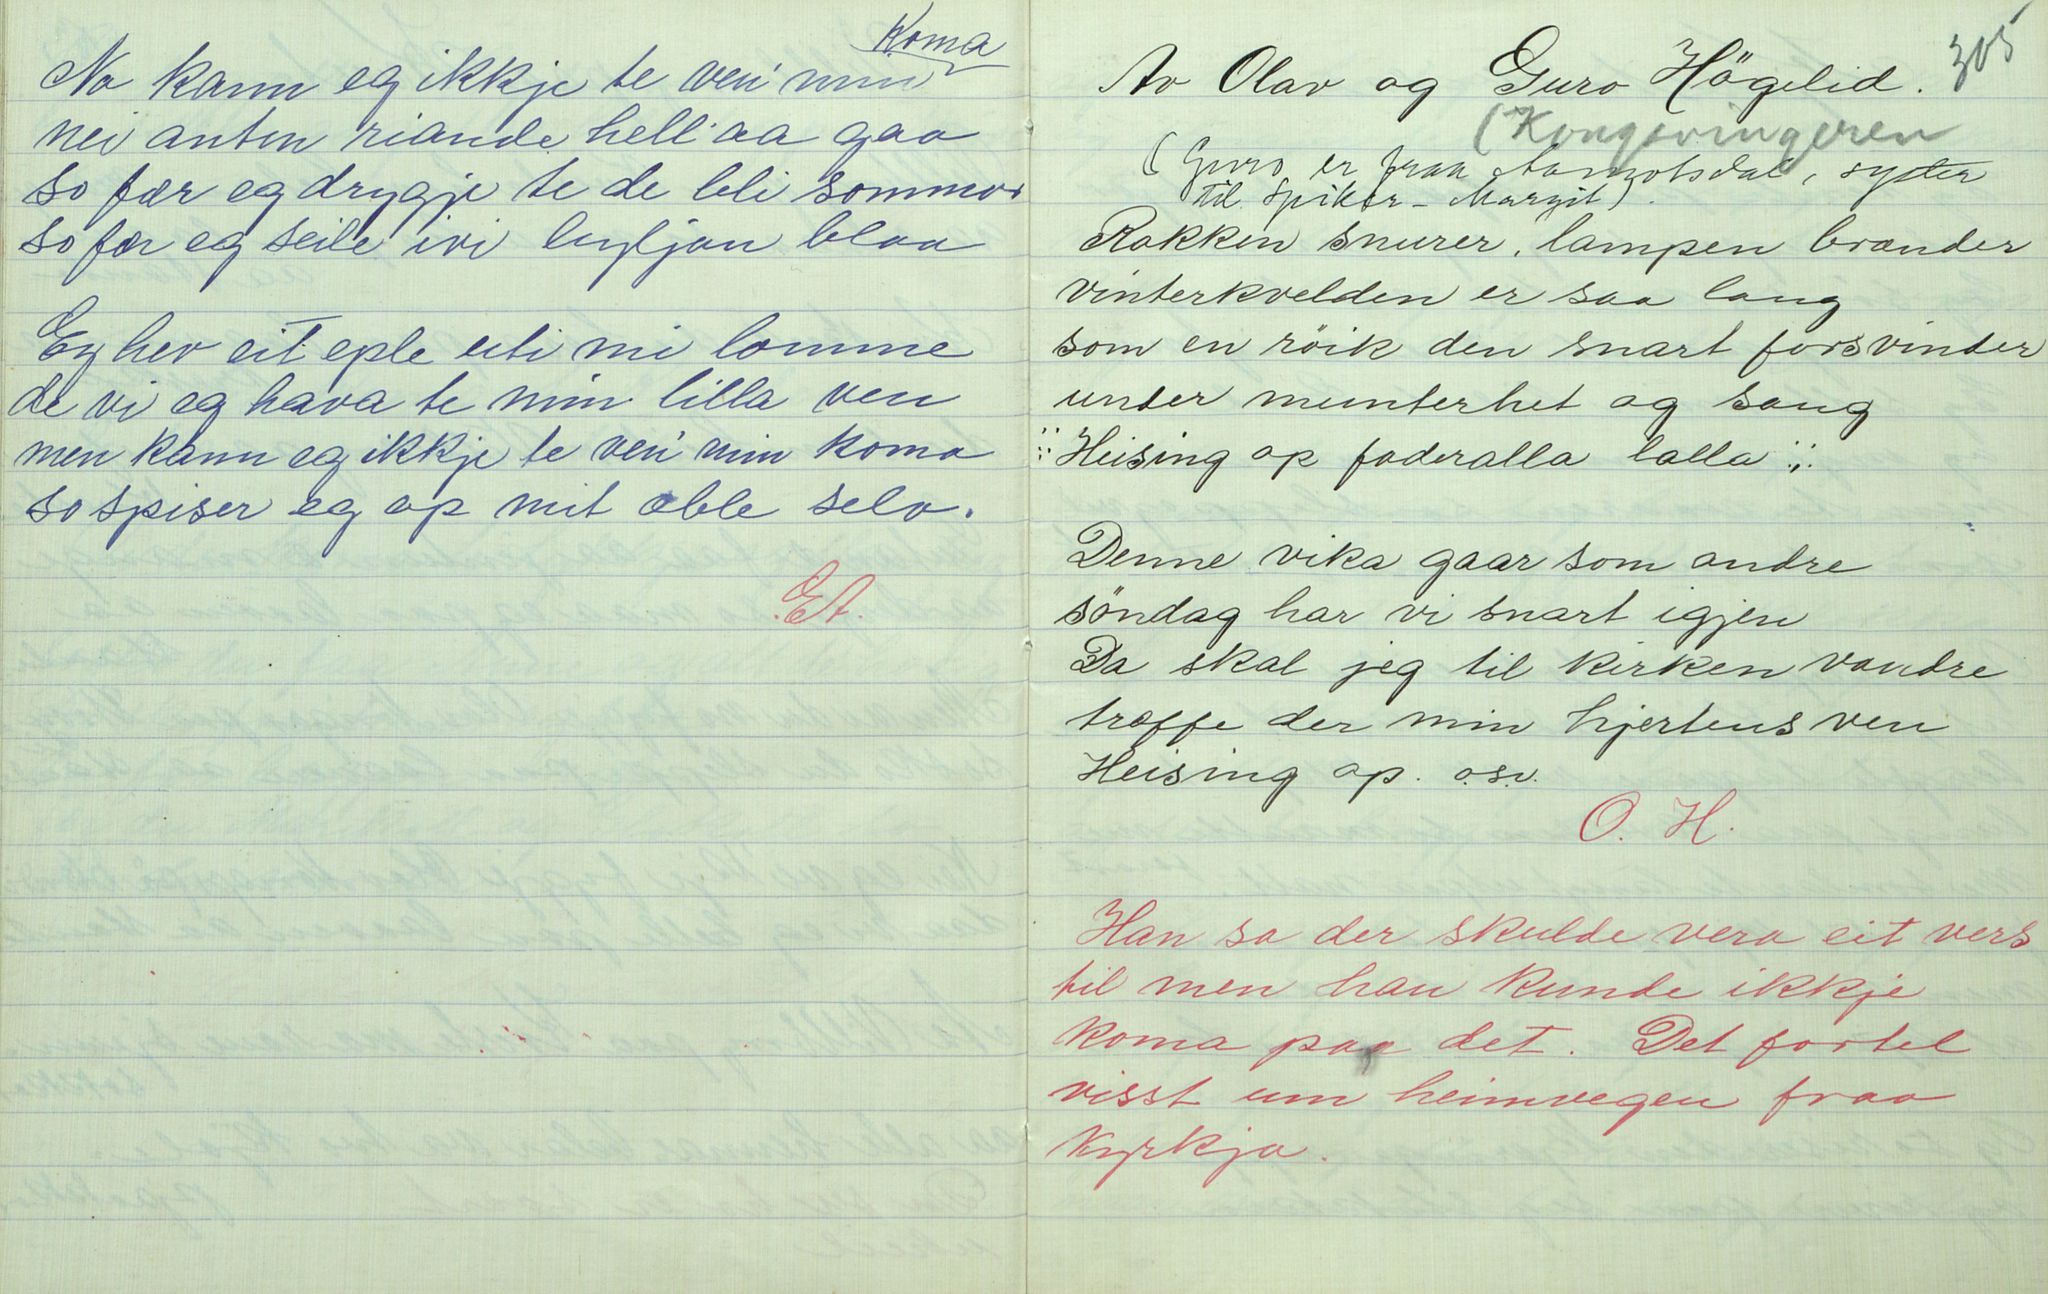 Koma
No kann eg ikkje te ven min
nei anten riande hell aa gaa
so fær eg drygje te de bli sommar
so fær eg seile ivi byljan blaa
Eg hev eit eple uti mi lomme
de vi eg hava te min lilla ven
men kann eg ikkje te ven min koma
so spiser eg op mit æble selv.
Et.
305
Av Olav og Guro Högelid.
(Kongsvingeren
(Guro er fraa Aamotsdal, syster
til Spikar-Margit).
Rokken snurer, lampen brænder
vinterkvelden er saa lang
som en röik den snart forsvinder
under munterhet og sang
:: Heising op faderalla lalla ::
Denne vika gaar som andre
söndag har vi snart igjen
Da skal jeg til kirken vandre
træffe der min hjertens ven
Heising op. osv.
O. H.
Han sa der skulde vera eit vers
til men han kunde ikkje
koma paa det. Det fortel
visst um heimvegen fraa
kyrkja.